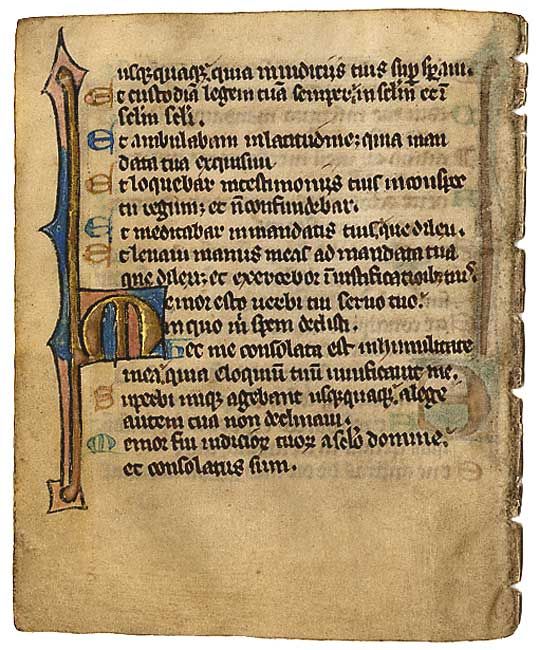 usq;quaq; quia in iudiciis tuis sup speraui.
Et custodiā legem tuā semper; in sclm et ī
sclm scli.
Et ambulabam in latitudine; quia man
data tua exquisiui
Et loquebar in testimoniis tuis in conspec
tu regum; et n̄ confundebar.
Et meditabar in mandatis tuis, que dilexi.
Et leuaui manus meas ad mandata tua
que dilexi; et exercebor ī iustificatioib; tuis.
Memor esto uerbi tui seruo tuo;
in quo m̄ spem dedisti.
Hec me consolata est in humilitate
mea; quia eloquium tuū uiuificauit me.
Superbi iniq; agebant usq;quaq; a lege
autem tua non declinaui.
Memor fui iudicioꝝ tuoꝝ a sclo domine;
et consolatus sum.